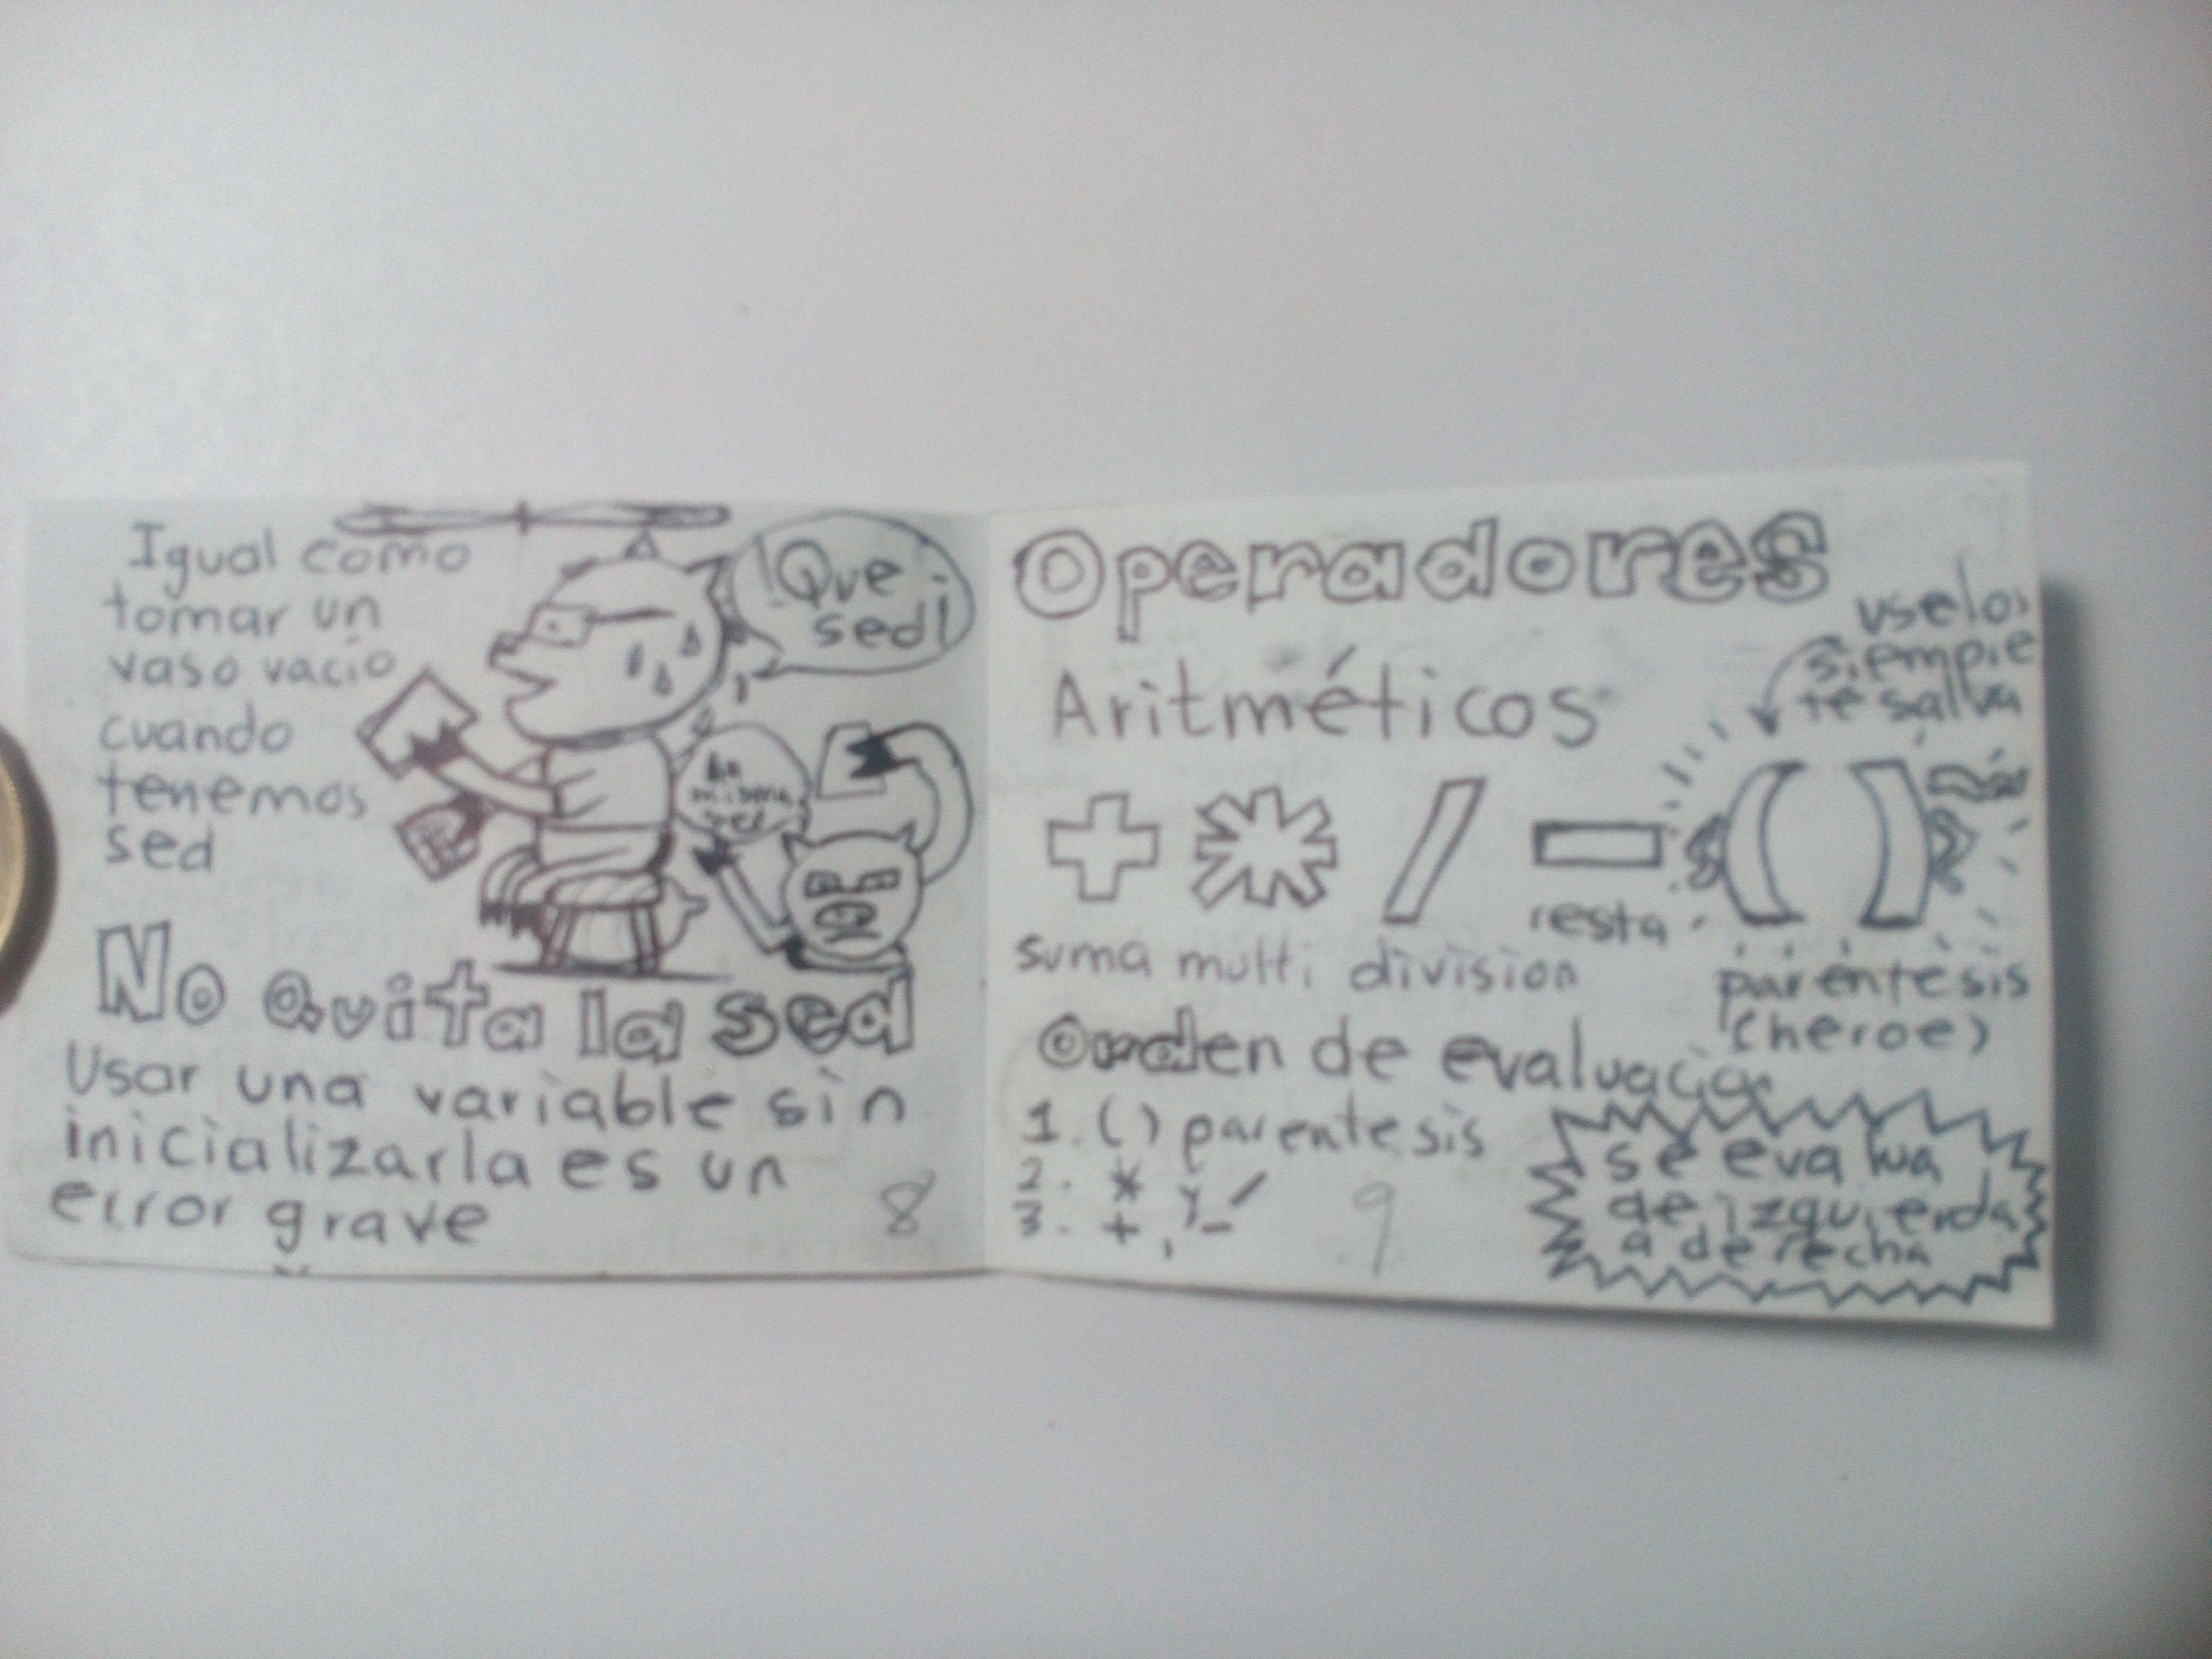 Igual como
tomar un
vaso vacio
cuando
tenemos
sed
¡Que
sed!
misma
No quita la sed
Usar una variable sin
inicializarla es un
error grave
8
Operadores
Aritméticos
uselos
siempre
te salva
+ * / - ( )
suma multi division
resta
parentesis
(heroe)
Orden de evaluacion
1. () parentesis
2. * y /
3. + , -
9
se evalua
de izquierda
a derecha